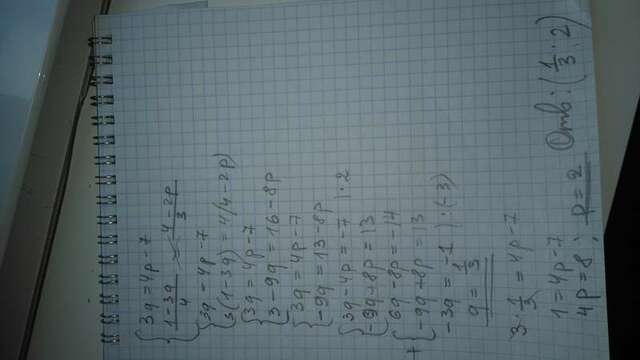 { 3q = 4p - 7
{ 1-3q/4 = 4-2p/3
{ 3q = 4p - 7
{ 3(1-3q) = 4(4-2p)
{ 3q = 4p - 7
{ 3 - 9q = 16 - 8p
{ 3q = 4p - 7
{ -9q = 13 - 8p
{ 3q - 4p = -7 | · 2
{ -9q + 8p = 13
+ { 6q - 8p = -14
{ -9q + 8p = 13
-3q = -1 | : (-3)
q = 1/3
3 · 1/3 = 4p - 7
1 = 4p - 7
4p = 8; p = 2 Отв: (1/3; 2)